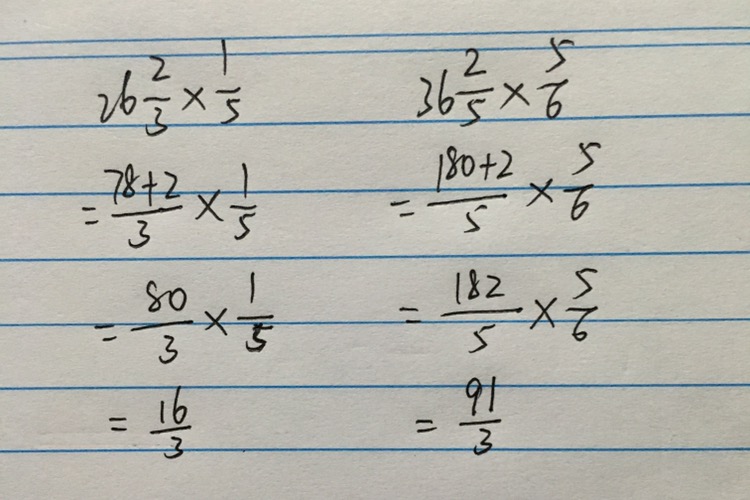 26 2/3 × 1/5
= (78+2)/3 × 1/5
= 80/3 × 1/5
= 16/3
36 2/5 × 5/6
= (180+2)/5 × 5/6
= 182/5 × 5/6
= 91/3